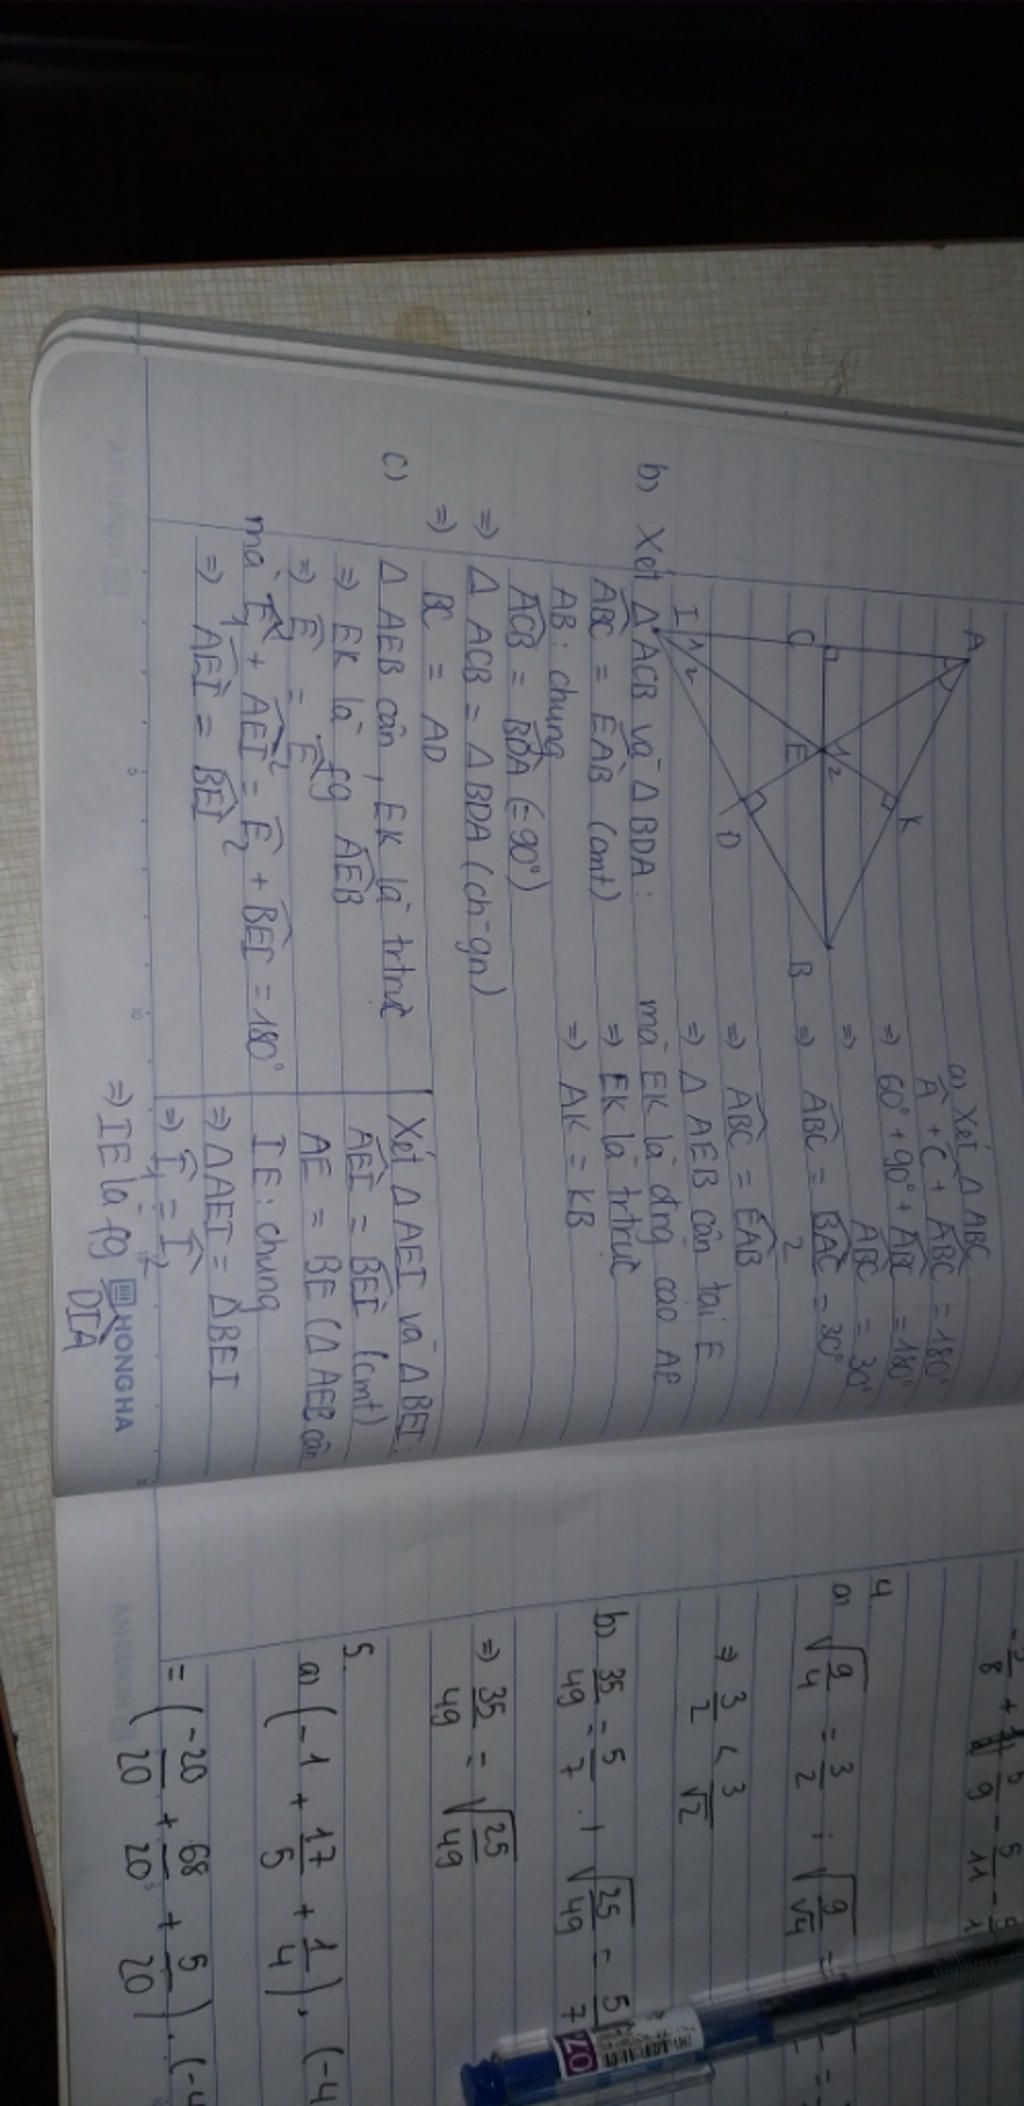 A
K
B
C
E
1 2
D
I
1 2
a) Xét ΔABC:
Â + Ĉ + ABC = 180°
=> 60° + 90° + ABC = 180°
=> ABC = 30°
=> ABC = BAC/2 = 30°
=> ABC = EAB
=> Δ AEB cân tại E
mà EK là đg cao AB
=> EK là trtrực
=> AK = KB
b) Xét Δ ACB và Δ BDA:
ABC = EAB (cmt)
AB: chung
ACB = BDA (= 90°)
=> Δ ACB = Δ BDA (ch-gn)
=> BC = AD
c) Δ AEB cân, EK là trtrực
=> EK là fg AEB
=> E₁ = E₂
mà E₁ + AEI = E₂ + BEI = 180°
=> AEI = BEI
Xét Δ AEI và Δ BEI:
AEI = BEI (cmt)
AE = BE (Δ AEB cân
IE: chung
=> Δ AEI = Δ BEI
=> I₁ = I₂
=> IE là fg DIA
HONG HA
4
a) √(9/4) = 3/2 ; √(9/√4) =
=> 3/2 < 3/√2
b) 35/49 = 5/7 ; √(25/49) = 5/7
=> 35/49 = √(25/49)
5.
a) (-1 + 17/5 + 1/4) . (-4
= (-20/20 + 68/20 + 5/20) . (-4